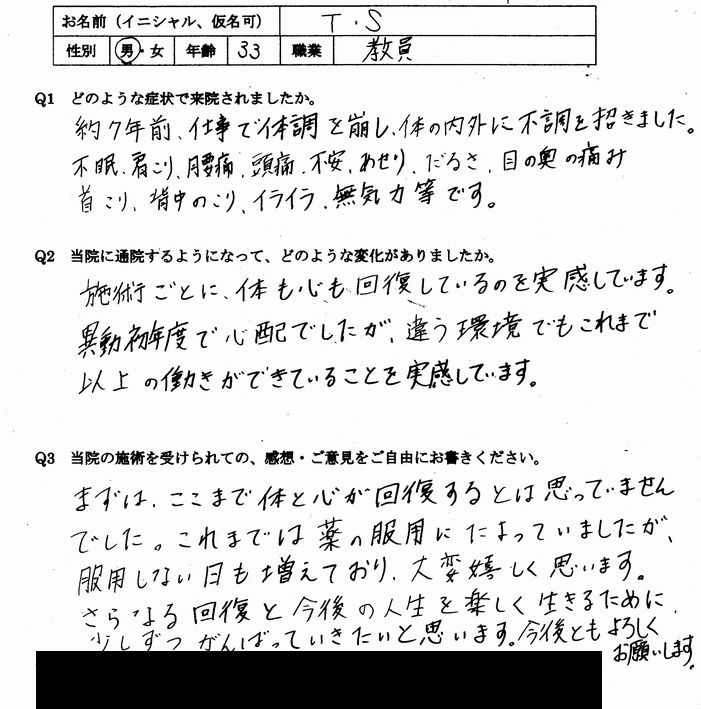 お名前（イニシャル、仮名可） T・S
性別 男・女 年齢 33 職業 教員
Q1 どのような症状で来院されましたか。
約7年前、仕事で体調を崩し、体の内外に不調を招きました。
不眠、肩こり、腰痛、頭痛、不安、あせり、だるさ、目の奥の痛み
首こり、背中のこり、イライラ、無気力等です。
Q2 当院に通院するようになって、どのような変化がありましたか。
施術ごとに、体も心も回復しているのを実感しています。
異動初年度で心配でしたが、違う環境でもこれまで
以上の働きができていることを実感しています。
Q3 当院の施術を受けられての、感想・ご意見をご自由にお書きください。
まずは、ここまで体と心が回復するとは思っていません
でした。これまでは薬の服用にたよっていましたが、
服用しない日も増えており、大変嬉しく思います。
さらなる回復と今後の人生を楽しく生きるために、
少しずつがんばっていきたいと思います。今後ともよろしく
お願いします。